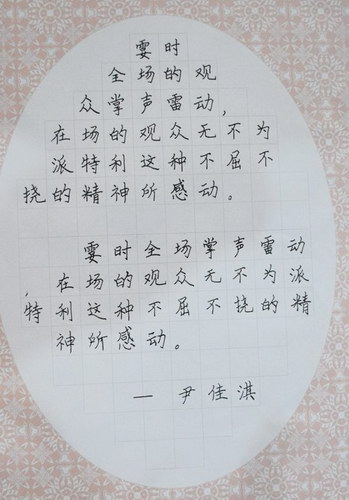 霎时
全场的观
众掌声雷动,
在场的观众无不为
派特利这种不屈不
挠的精神所感动。
霎时全场掌声雷动
,在场的观众无不为派
特利这种不屈不挠的精
神所感动。
— 尹佳淇